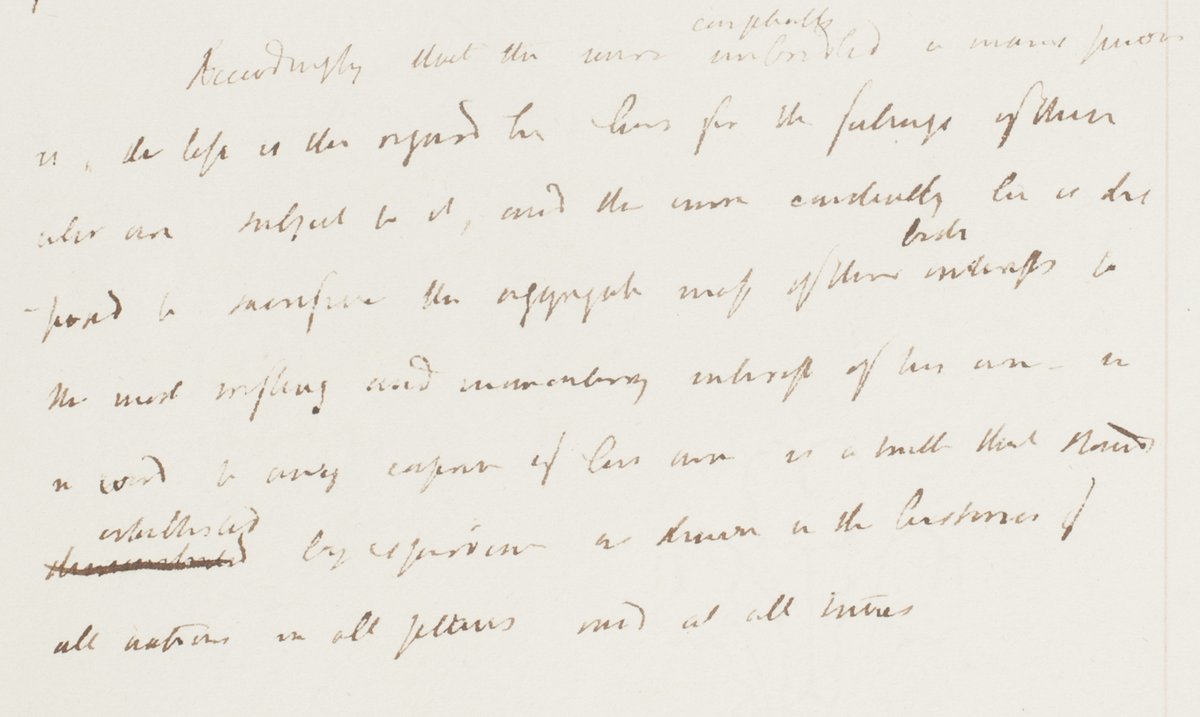 Accordingly that the more unbridled a mans power
is, the less is the regard he has for the feelings of those
who are subject to it, and the more constantly he is dis
-posed to sacrifice the aggregate mass of their interests to
the most trifling and momentary interest of his own - in
a word to any caprice of his own is a truth that stands
established
demonstrated by experience as shewn in the histories of
all nations in all places and at all times